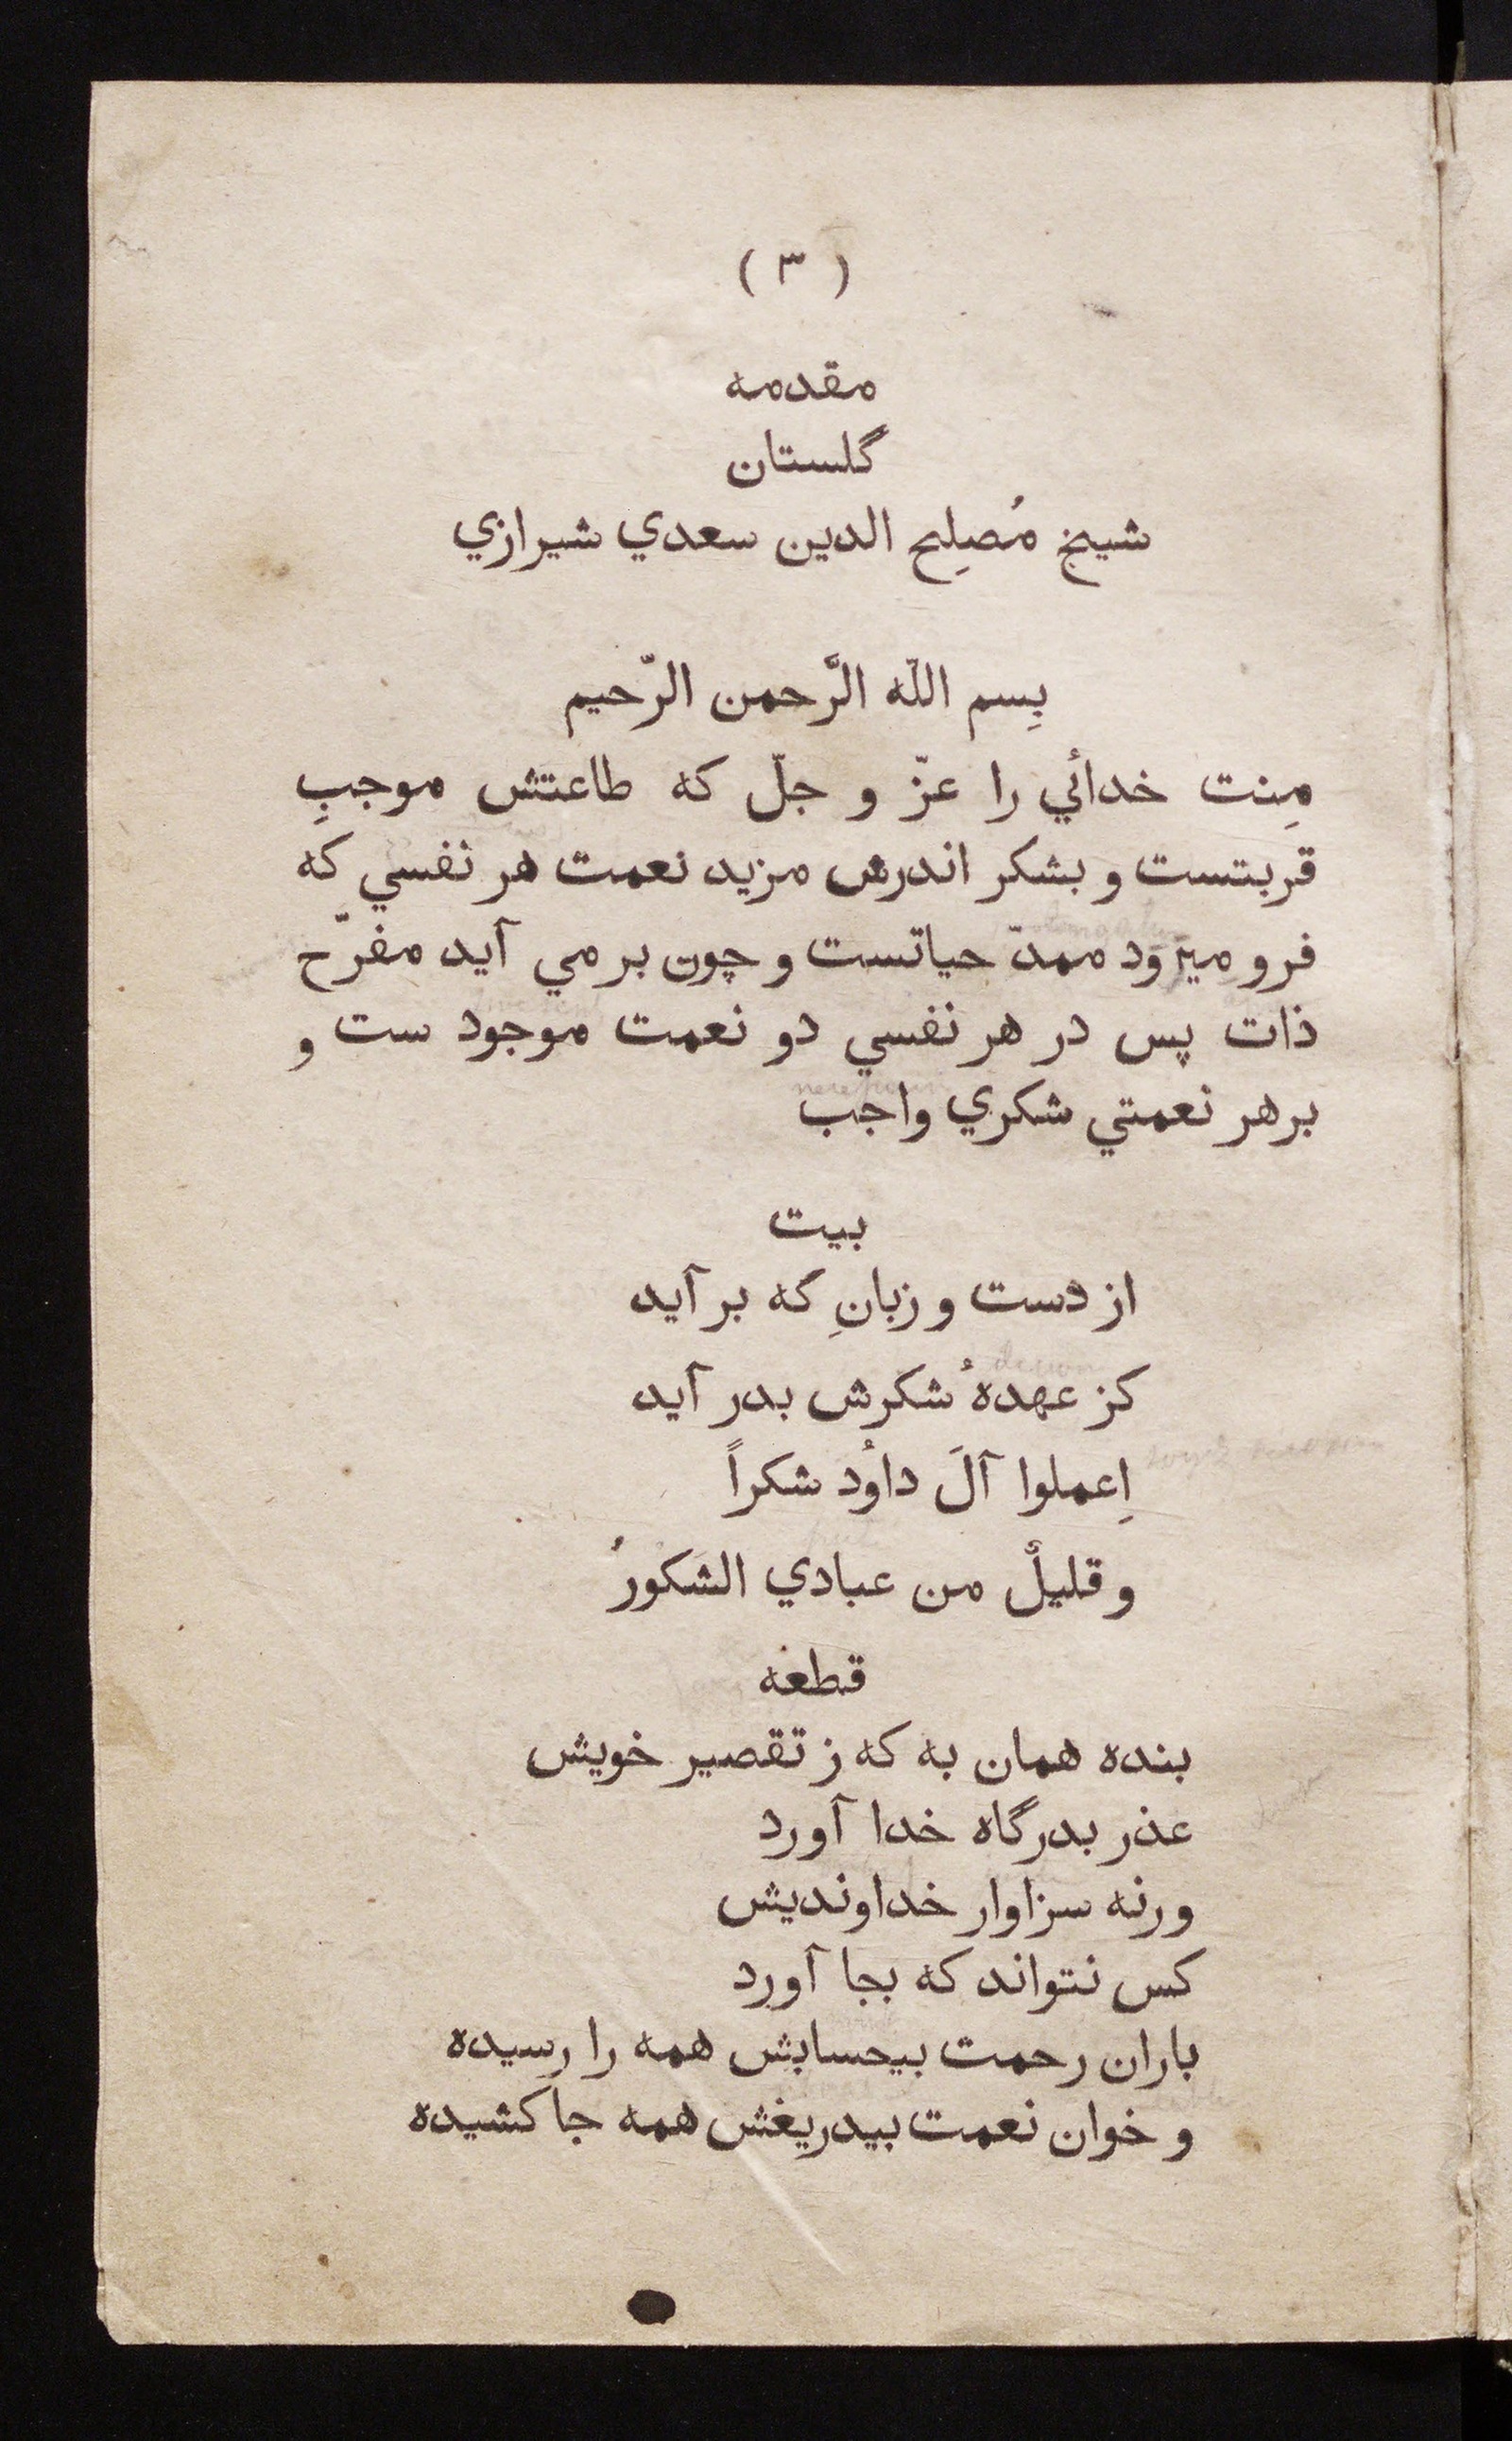 ( ۳ )
مقدمه
گلستان
شیخ مُصلِح الدین سعدي شیرازي
بِسم اللّه الرَّحمن الرّحیم
مِنت خدائي را عزّ و جلّ که طاعتش موجبِ
قربتست و بشکر اندرش مزید نعمت هر نفسي که
فرو میرَوَد ممدّ حیاتست و چون بر مي آید مفرّح
ذات پس در هر نفسي دو نعمت موجود ست و
برهر نعمتي شکري واجب
بیت
از دست و زبانِ که بر آید
کز عهدهُ شکرش بدر آید
اِعملوا آلَ داوُد شکراً
و قلیلٌ من عبادي الشَکورُ
قطعه
بنده همان به که ز تقصیر خویش
عذر بدرگاه خدا آورد
ورنه سزاوار خداوندیش
کس نتواند که بجا آورد
باران رحمت بیحسابش همه را رسیده
و خوان نعمت بیدریغش همه جا کشیده